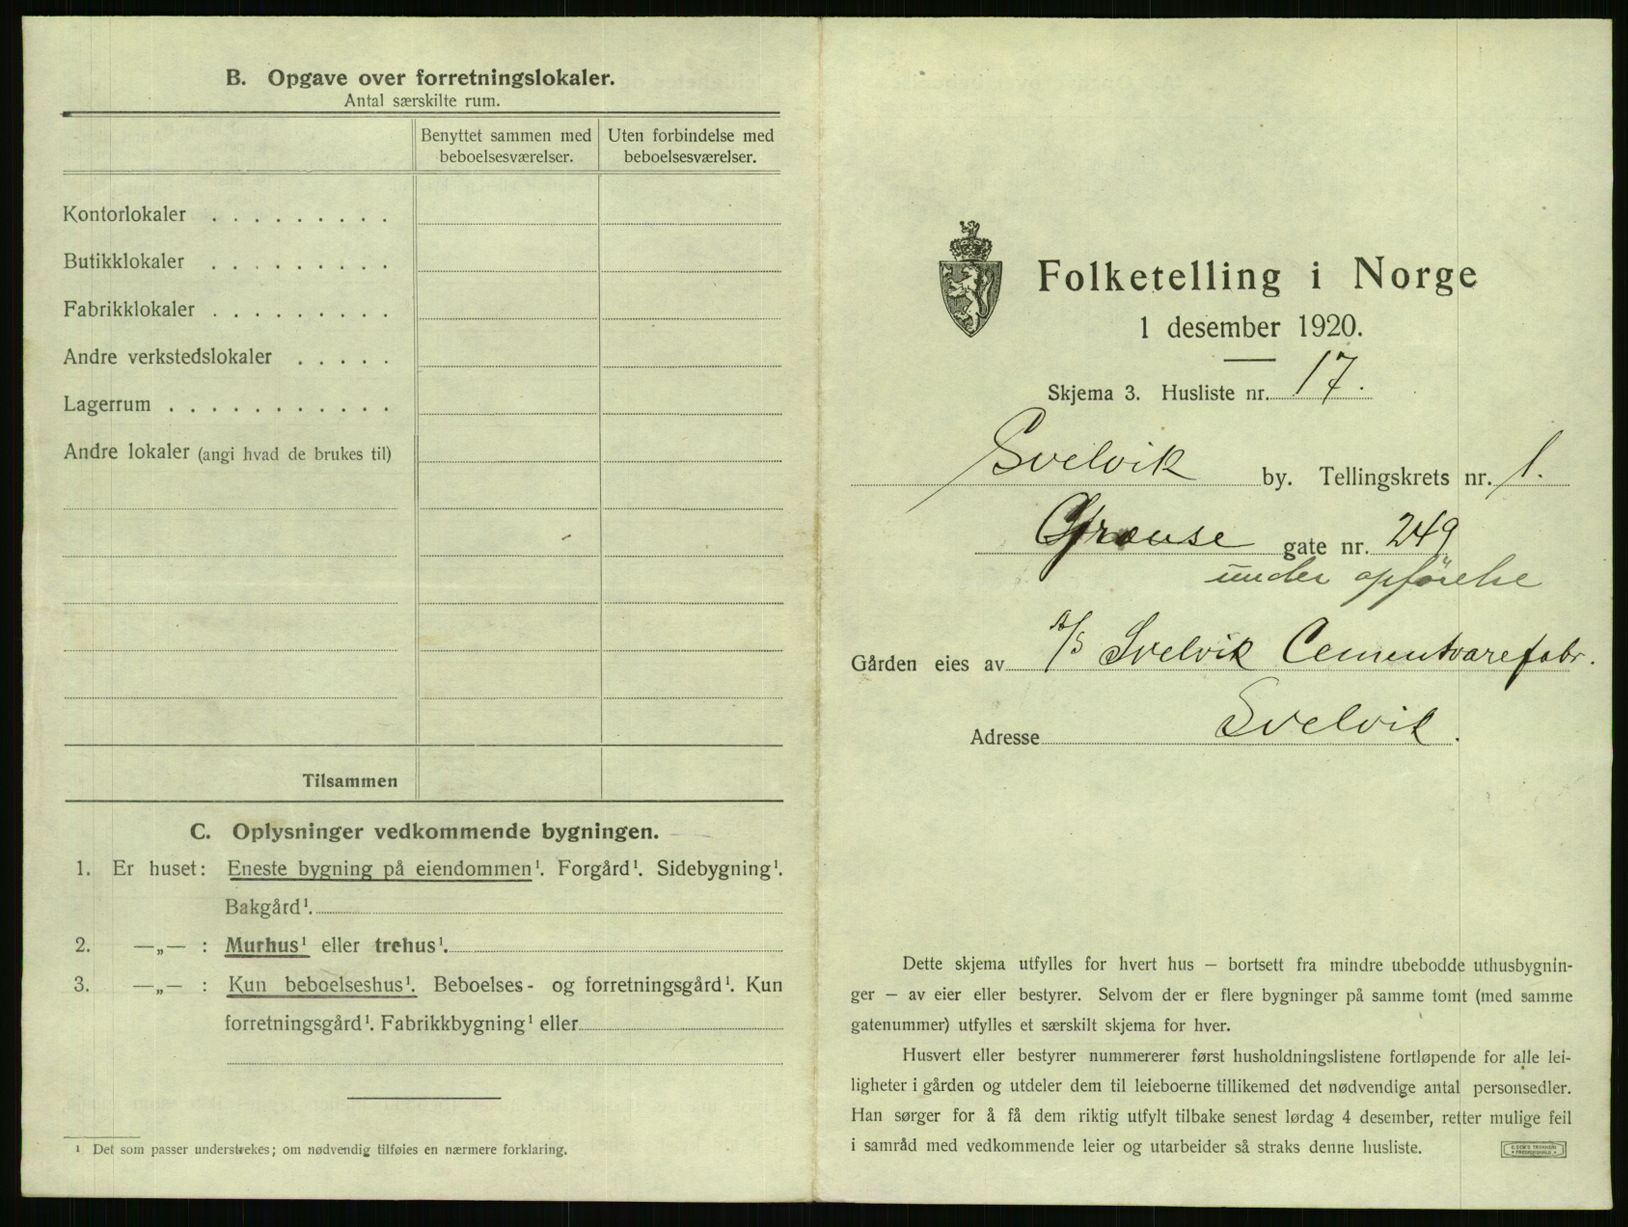 B. Opgave over forretningslokaler.
Antal særskilte rum.
Benyttet sammen med beboelsesværelser.
Uten forbindelse med beboelsesværelser.
Kontorlokaler . . . . . . . . .
Butikklokaler . . . . . . . . .
Fabrikklokaler . . . . . . . . .
Andre verkstedslokaler . . . . .
Lagerrum . . . . . . . . . . .
Andre lokaler (angi hvad de brukes til)
Tilsammen
C. Oplysninger vedkommende bygningen.
1. Er huset: Eneste bygning på eiendommen¹. Forgård¹. Sidebygning¹.
Bakgård¹.
2. —„— : Murhus¹ eller trehus¹.
3. —„— : Kun beboelseshus¹. Beboelses- og forretningsgård¹. Kun
forretningsgård¹. Fabrikkbygning¹ eller
¹ Det som passer understrekes; om nødvendig tilføies en nærmere forklaring.
Folketelling i Norge
1 desember 1920.
Skjema 3. Husliste nr. 17.
Svelvik by. Tellingskrets nr. 1.
Grænse gate nr. 249
under opførelse
Gården eies av A/S Svelvik Cementvarefabr.
Adresse Svelvik.
Dette skjema utfylles for hvert hus – bortsett fra mindre ubebodde uthusbygnin-
ger – av eier eller bestyrer. Selvom der er flere bygninger på samme tomt (med samme
gatenummer) utfylles et særskilt skjema for hver.
Husvert eller bestyrer nummererer først husholdningslistene fortløpende for alle lei-
ligheter i gården og utdeler dem til leieboerne tillikemed det nødvendige antal personsedler.
Han sørger for å få dem riktig utfylt tilbake senest lørdag 4 desember, retter mulige feil
i samråd med vedkommende leier og utarbeider så straks denne husliste.